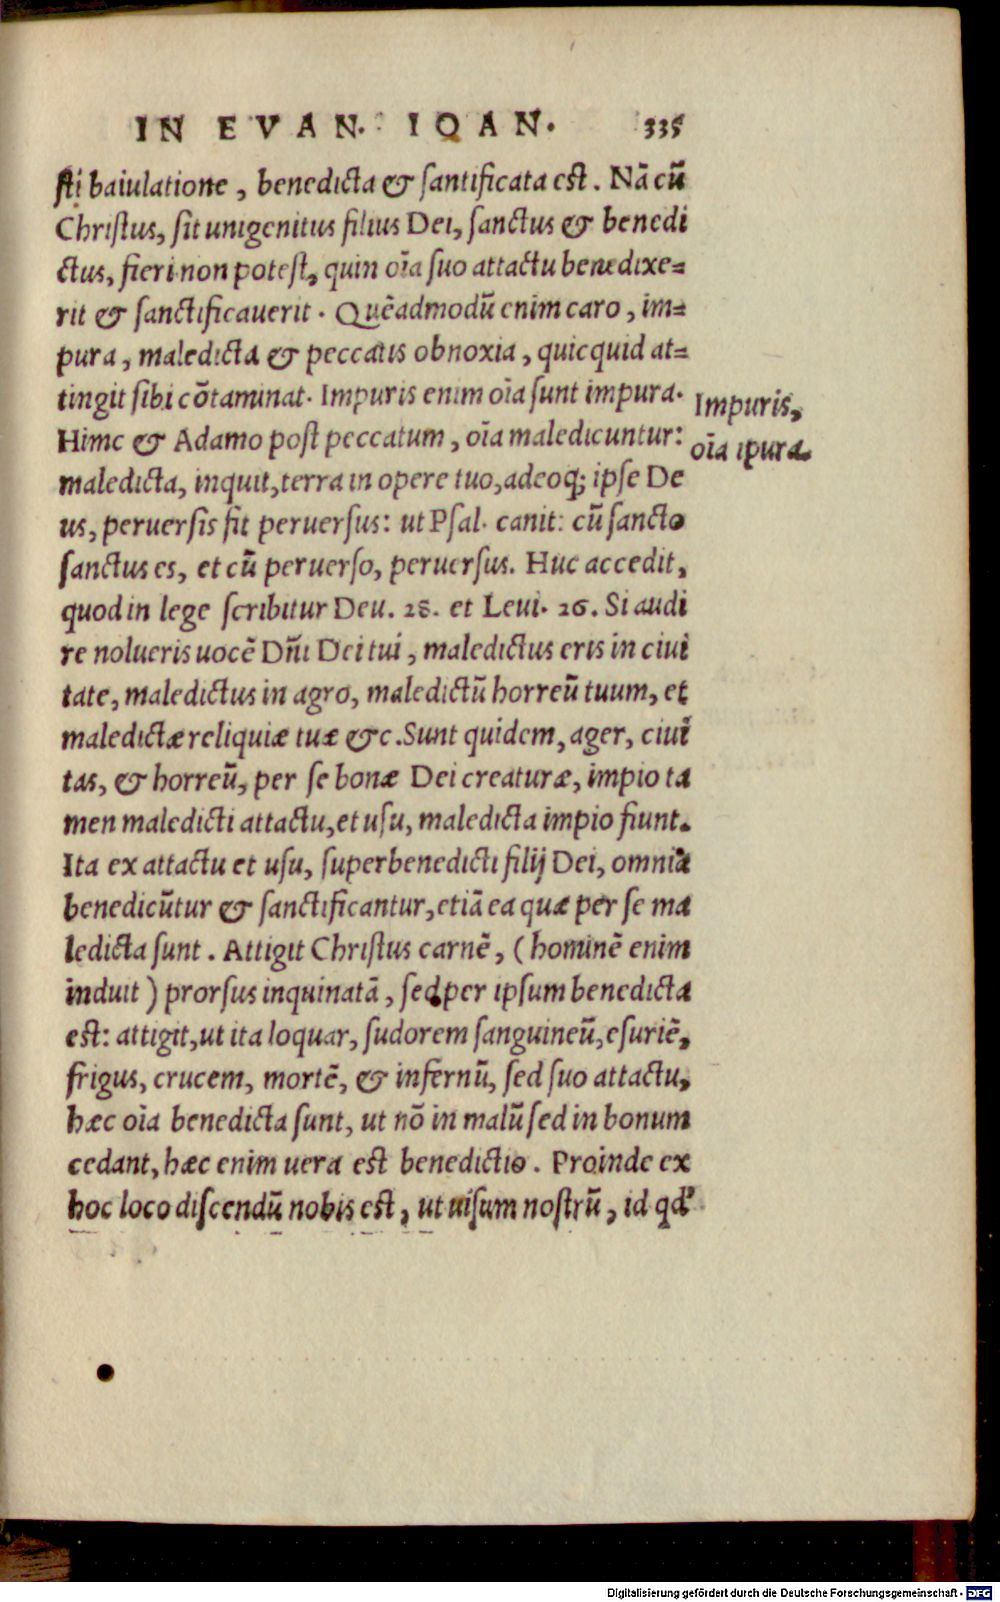 IN EVAN. IOAN. 335
sti baiulatione, benedicta & santificata est. Nā cū
Christus, sit unigenitus filius Dei, sanctus & benedi
ctus, fieri non potest, quin oīa suo attactu benedixe=
rit & sanctificauerit. Quēadmodū enim caro, im=
pura, maledicta & peccatis obnoxia, quicquid at=
tingit sibi cōtaminat. Impuris enim oīa sunt impura.
Impuris,
Hinc & Adamo post peccatum, oīa maledicuntur:
oīa ipura.
maledicta, inquit, terra in opere tuo, adeoq; ipse De
us, peruersis fit peruersus: ut Psal. canit: cū sancto
sanctus es, et cū peruerso, peruersus. Huc accedit,
quod in lege scribitur Deu. 28. et Leui. 26. Si audi
re nolueris uocē Dñi Dei tui, maledictus eris in ciui
tate, maledictus in agro, maledictū horreū tuum, et
maledictæ reliquiæ tuæ &c. Sunt quidem, ager, ciui
tas, & horreū, per se bonæ Dei creaturæ, impio ta
men maledicti attactu, et usu, maledicta impio fiunt.
Ita ex attactu et usu, superbenedicti filij Dei, omnia
benedicūtur & sanctificantur, etiā ea quæ per se ma
ledicta sunt. Attigit Christus carnē, (hominē enim
induit) prorsus inquinatā, sed per ipsum benedicta
est: attigit, ut ita loquar, sudorem sanguineū, esuriē,
frigus, crucem, mortē, & infernū, sed suo attactu,
hæc oīa benedicta sunt, ut nō in malū sed in bonum
cedant, hæc enim uera est benedictio. Proinde ex
hoc loco discendū nobis est, ut uisum nostrū, id qd'
Digitalisierung gefördert durch die Deutsche Forschungsgemeinschaft - DFG